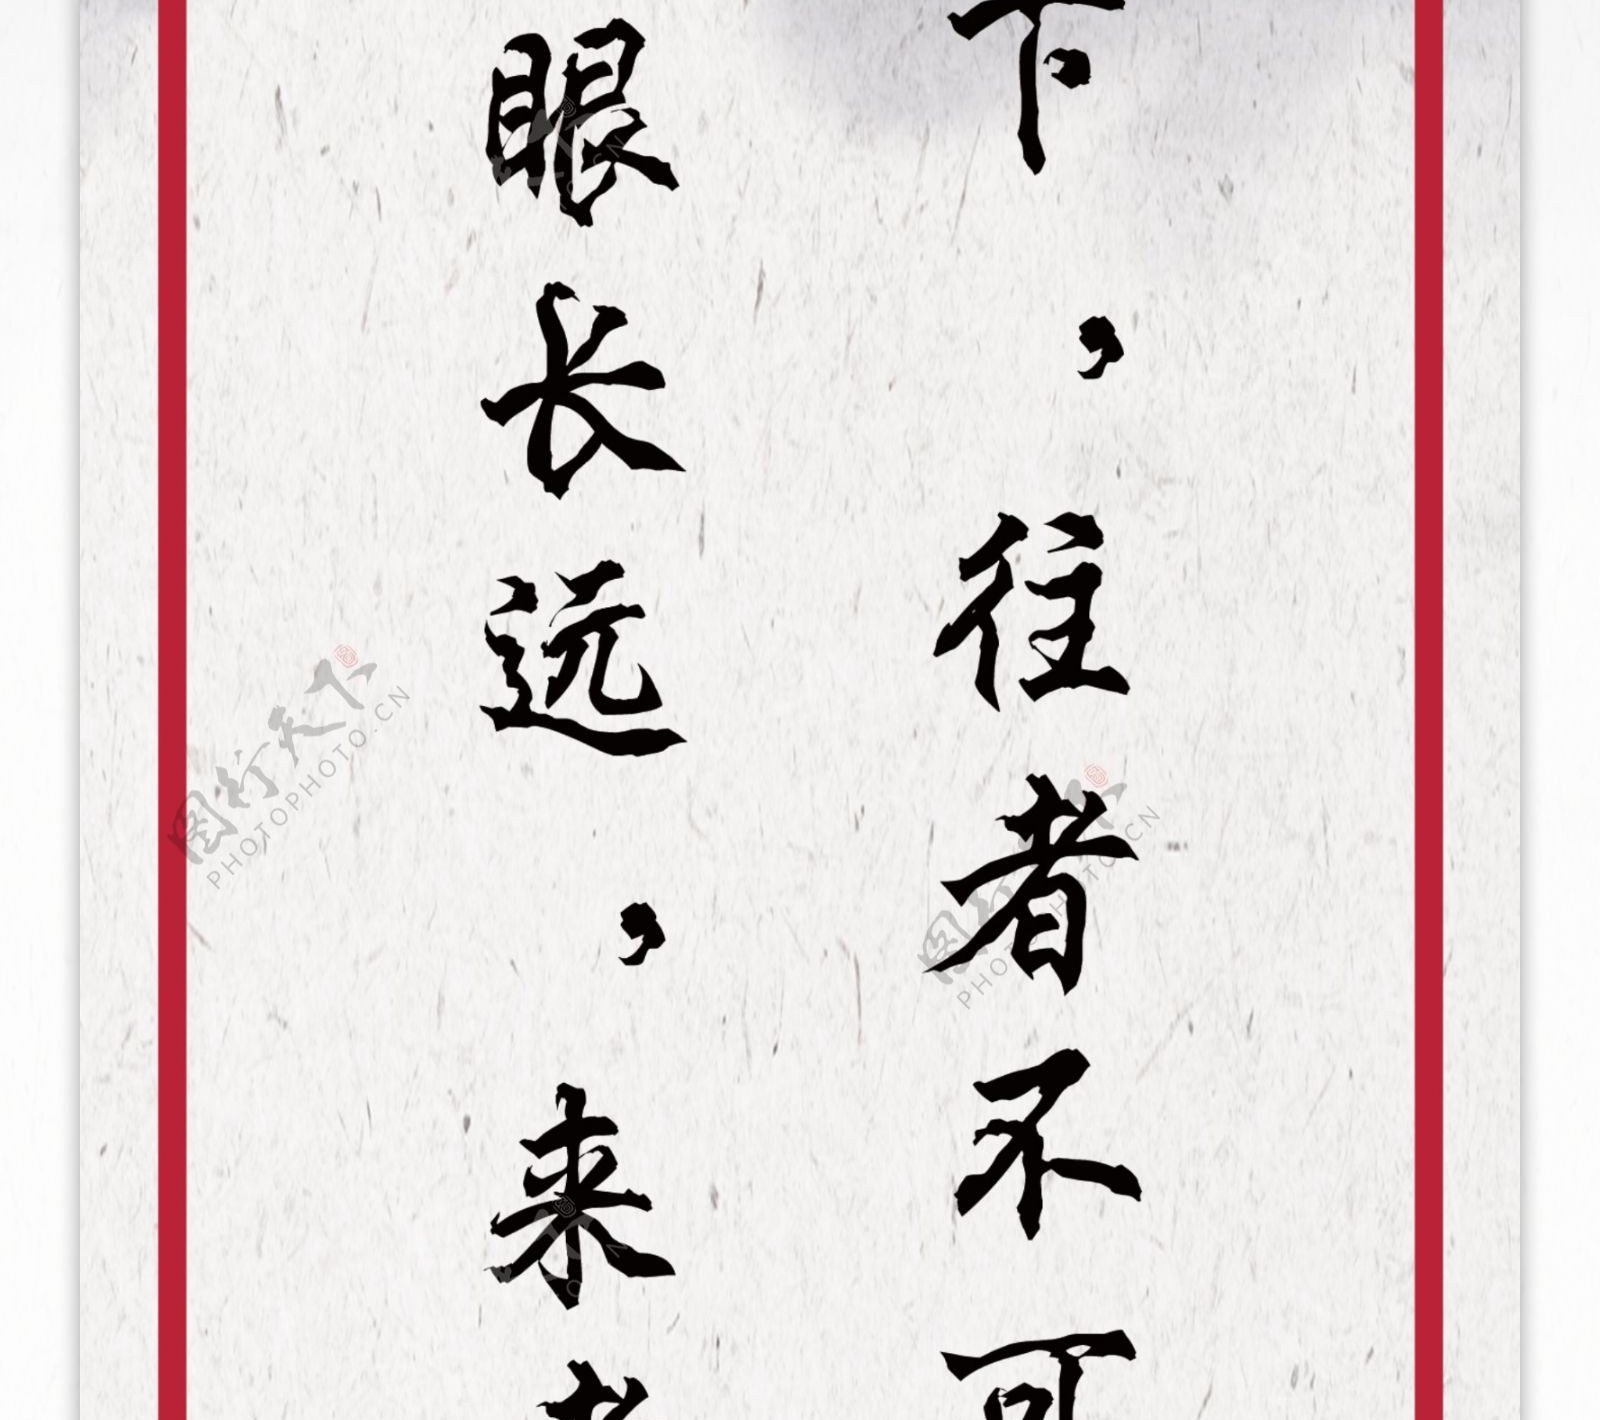 下，往者不可
眼长远，来者
图行天下
PHOTOPHOTO.CN
图行天下
PHOTOPHOTO.CN